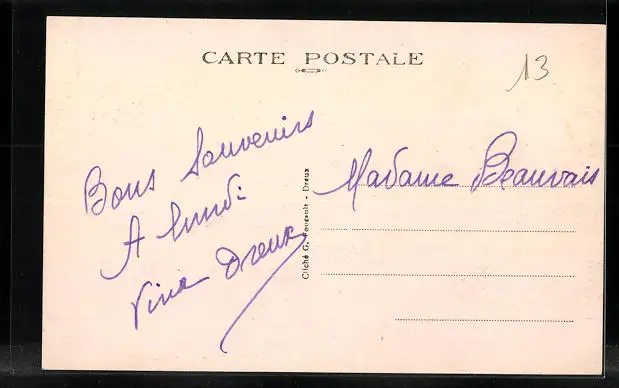 CARTE POSTALE
13
Bons Souvenirs
A lundi
Vive Dreux
Cliché G. Foucault - Dreux
Madame Beauvais